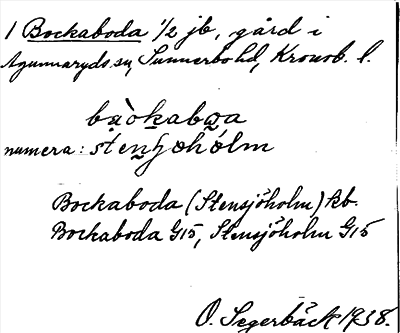 1 Bockaboda 1/2 jb, gård i
Agunnaryds sn, Sunnerbo hd, Kronob. l.
bo̤òkabo̤a
numera: stenʃøhólm
Bockaboda (Stensjöholm) kb.
Bockaboda G15, Stensjöholm G15
O. Segerbäck 1938.